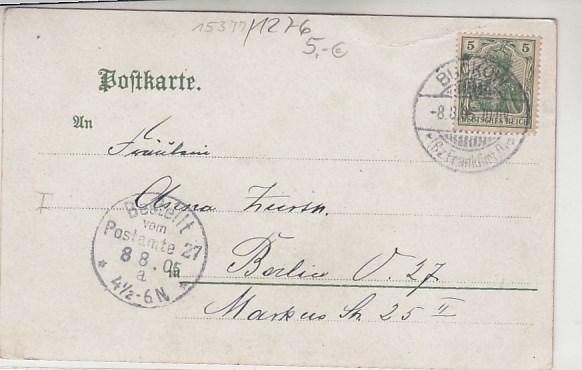 15377/1276
5,- €
5
DEUTSCHES REICH
BUCKOW
-8.8.
(Bz. Frankfurt O.)
Postkarte.
An
Fräulein
Anna
I
Bestellt
vom
Postamte 27
8 8.05
a
4½-6N
in
Berlin O. 27
Markus Str. 25 II